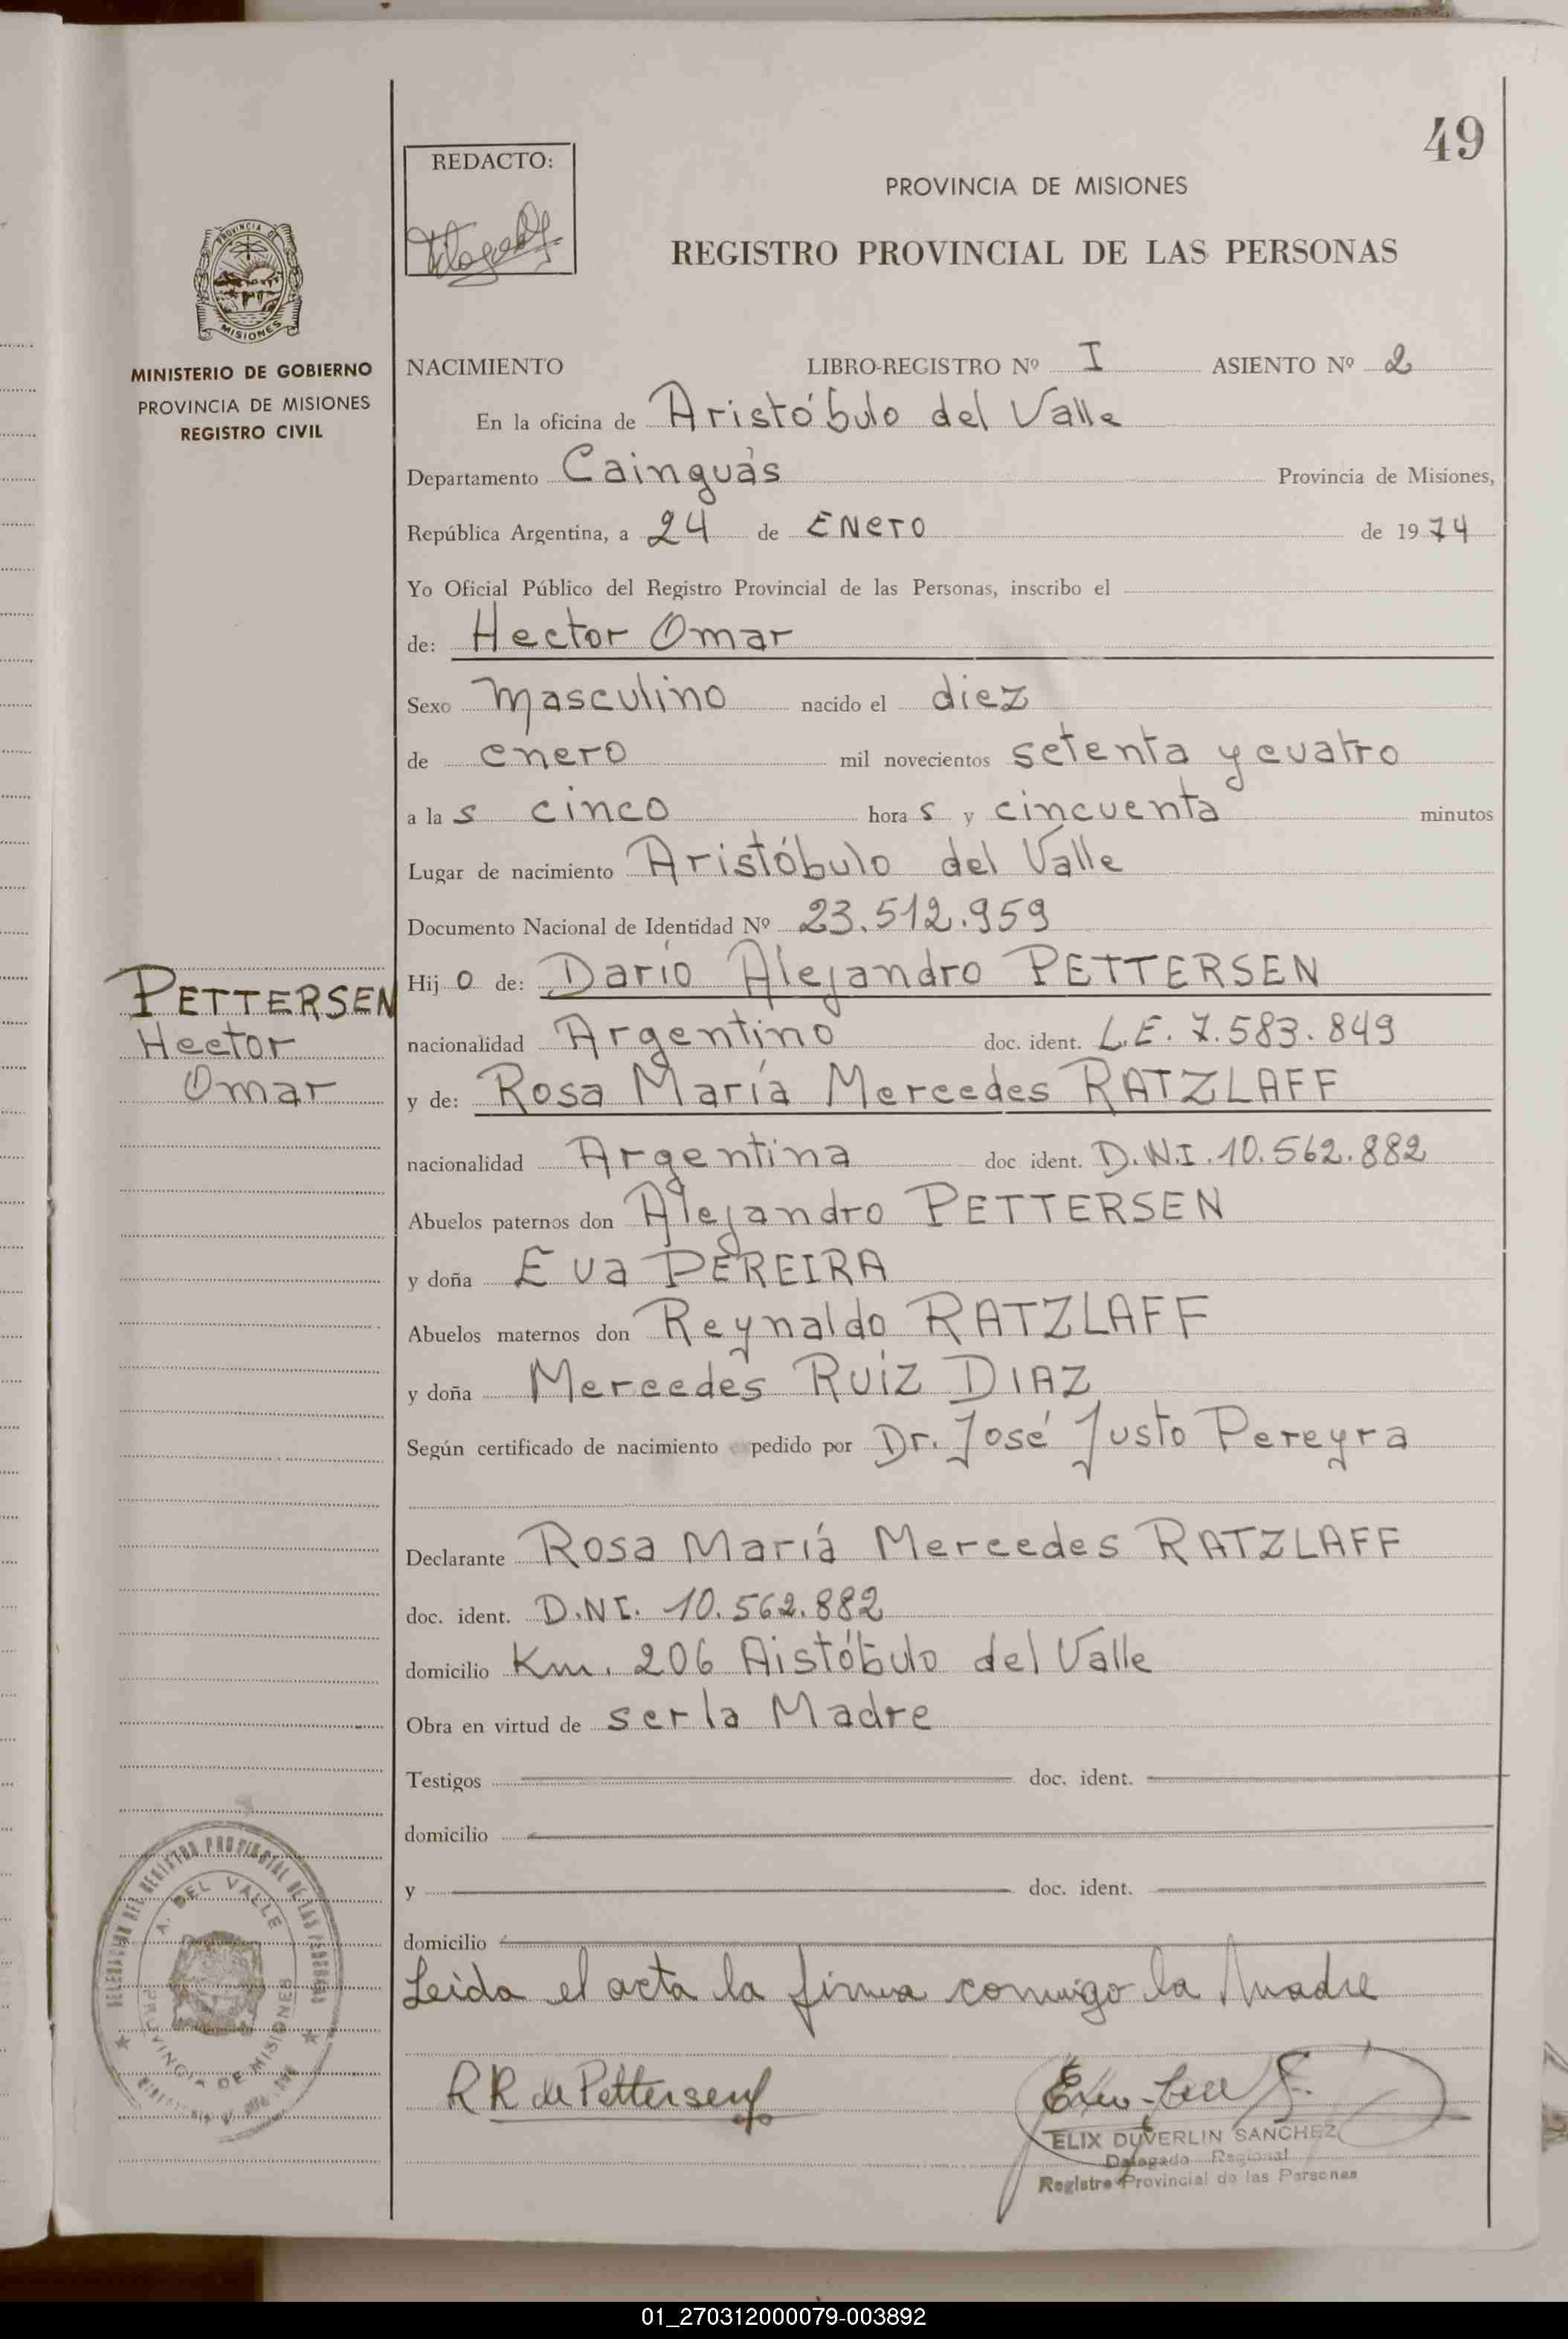 49
REDACTO:
PROVINCIA DE MISIONES
REGISTRO PROVINCIAL DE LAS PERSONAS
PROVINCIA DE
MISIONES
MINISTERIO DE GOBIERNO
PROVINCIA DE MISIONES
REGISTRO CIVIL
NACIMIENTO LIBRO-REGISTRO Nº I ASIENTO Nº 2
En la oficina de Aristóbulo del Valle
Departamento Cainguás Provincia de Misiones,
República Argentina, a 24 de ENERO de 1974
Yo Oficial Público del Registro Provincial de las Personas, inscribo el
de: Hector Omar
Sexo masculino nacido el diez
de enero mil novecientos setenta y cuatro
a la s cinco hora s y cincuenta minutos
Lugar de nacimiento Aristóbulo del Valle
Documento Nacional de Identidad Nº 23.512.959
Hij o de: Darío Alejandro PETTERSEN
PETTERSEN
Hector
Omar
nacionalidad Argentino doc. ident. L.E. 7.583.849
y de: Rosa María Mercedes RATZLAFF
nacionalidad Argentina doc ident. D.N.I. 10.562.882
Abuelos paternos don Alejandro PETTERSEN
y doña Eva PEREIRA
Abuelos maternos don Reynaldo RATZLAFF
y doña Mercedes RUIZ DIAZ
Según certificado de nacimiento pedido por Dr. José Justo Pereyra
Declarante Rosa Mariá Mercedes RATZLAFF
doc. ident. D.NI. 10.562.882
domicilio Km. 206 Aistóbulo del Valle
Obra en virtud de ser la Madre
Testigos doc. ident.
domicilio
y doc. ident.
domicilio
Leida el acta la firma conmigo la Madre
DELEGACION REG. REGISTRO PROVINCIAL DE LAS PERSONAS
A. DEL VALLE
PROVINCIA DE MISIONES
R R de Pettersen
ELIX DUVERLIN SANCHEZ
Delegado Regional
Registro Provincial de las Personas
01_270312000079-003892